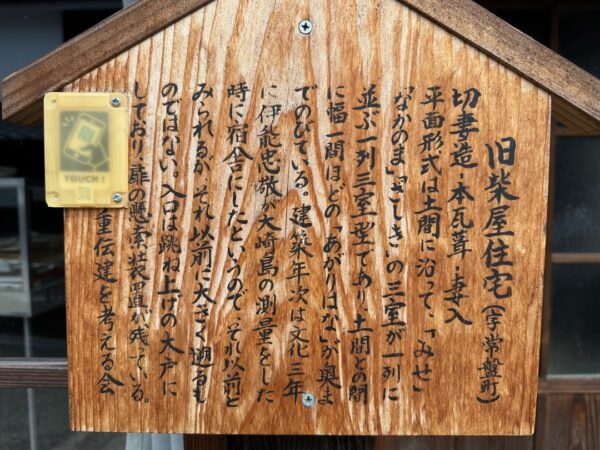 旧柴屋住宅(字常盤町)
切妻造・本瓦葺・妻入
平面形式は土間に沿って、「みせ」
「なかのま」「ざしき」の三室が一列に
並ぶ一列三室型であり、土間との間
に幅一間ほどの「あがりはな」が奥ま
でのびている。建築年次は文化三年
に伊能忠敬が大崎島の測量をした
時に宿舎にしたというので、それ以前と
みられるが、それ以前に大きく遡るも
のではない。入口は跳ね上げの大戸に
しており、扉の懸吊装置が残っている。
重伝建を考える会
TOUCH!